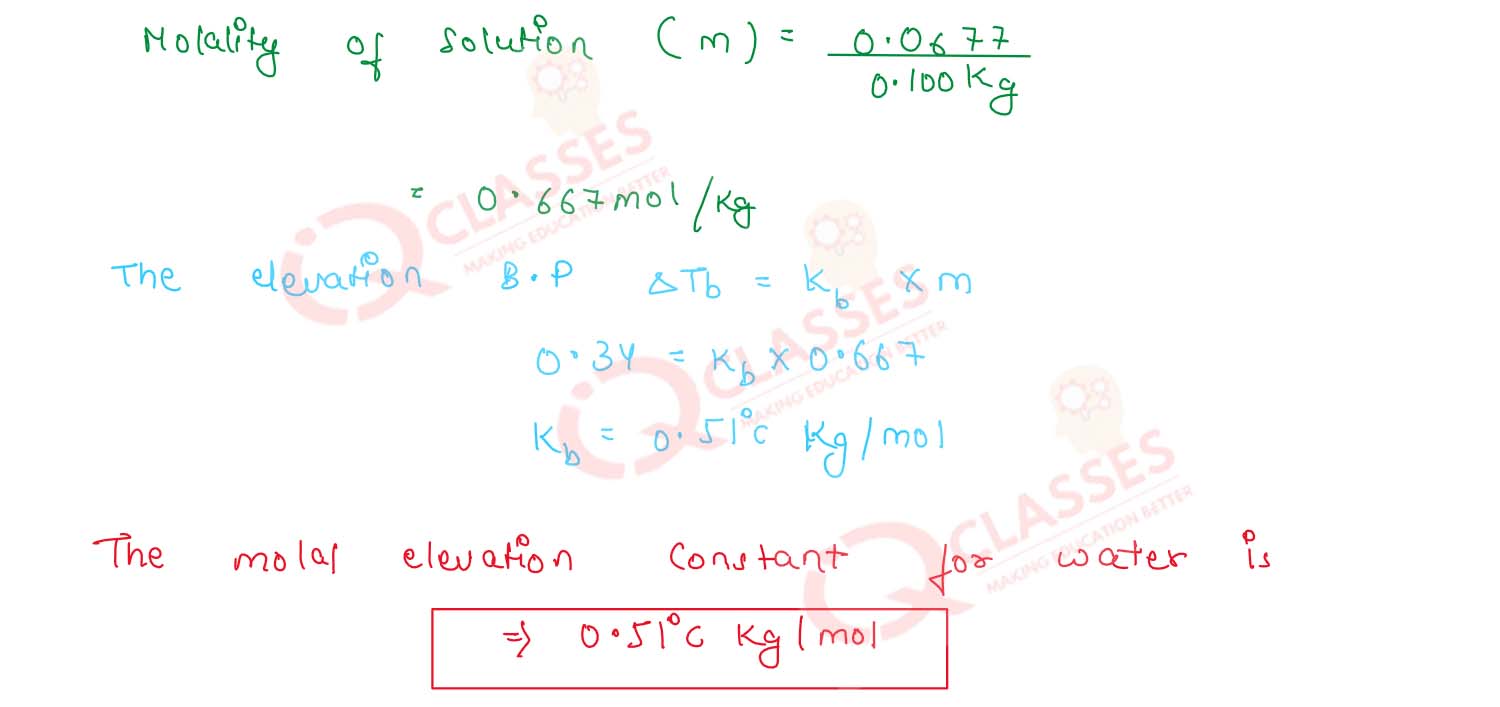 Molality of solution (m) = 0.0677 / 0.100 Kg
= 0.667 mol/Kg
The elevation B.P ΔTb = Kb × m
0.34 = Kb × 0.667
Kb = 0.51°C Kg/mol
The molal elevation Constant for water is
⇒ 0.51°C Kg/mol
QCLASSES
MAKING EDUCATION BETTER
QCLASSES
MAKING EDUCATION BETTER
QCLASSES
MAKING EDUCATION BETTER